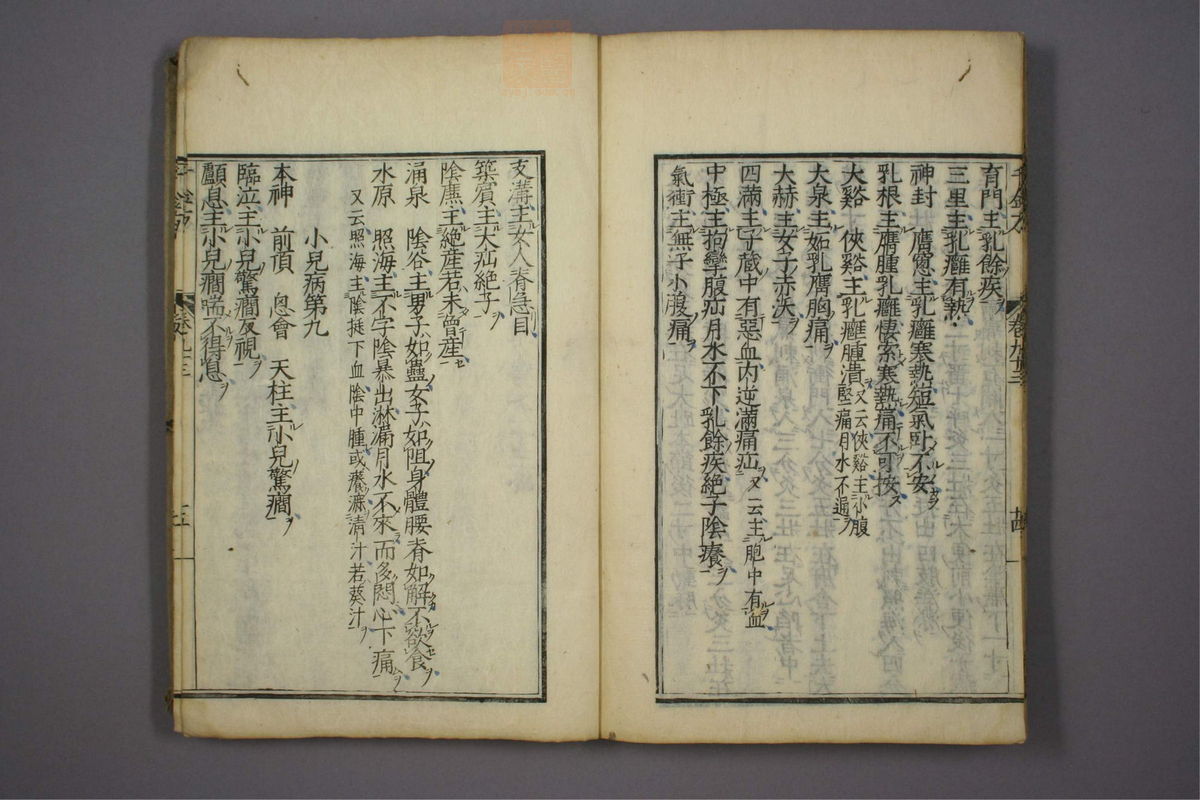 肓門主乳餘疾
三里主乳癰有熱
神封　膺窻主乳癰寒熱短氣臥不安
乳根主膺腫乳癰悽索寒熱痛不可按
大谿　俠谿主乳癰腫潰又云俠谿主小腹堅痛月水不通
大泉主妬乳膺胸痛
大赫主女子赤沃
四滿主子藏中有惡血内逆滿痛疝又云主胞中有血
中極主拘攣腹疝月水不下乳餘疾絶子陰癢
氣衝主無子小腹痛
支溝主女人脊急目
築賓主大疝絶子
陰廉主絶産若未曾産
涌泉　陰谷主男子如蠱女子如阻身體腰脊如解不欲食
水原　照海主不字陰暴出淋漏月水不來而多悶心下痛
又云照海主陰挺下血陰中腫或癢漉清汁若葵汁
小兒病第九
本神　前頂　囟會　天柱主小兒驚癎
臨泣主小兒驚癎反視
顱息主小兒癎喘不得息